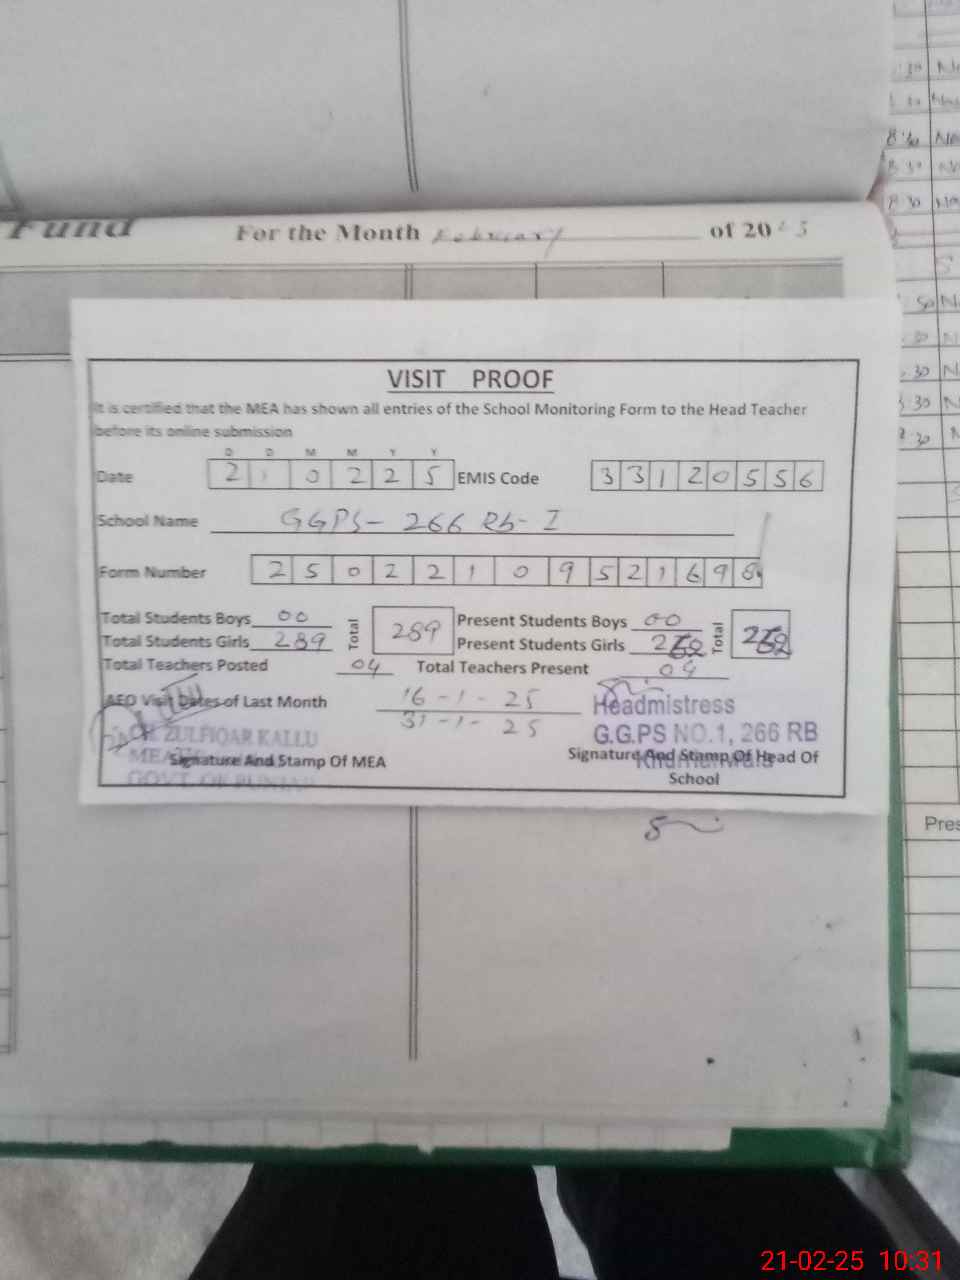 Fund For the Month February of 2025
VISIT PROOF
It is certified that the MEA has shown all entries of the School Monitoring Form to the Head Teacher
before its online submission
D D M M Y Y
Date 2 1 0 2 2 5 EMIS Code 3 3 1 2 0 5 5 6
School Name GGPS- 266 Rb- I
Form Number 2 5 0 2 2 1 0 9 5 2 1 6 9 8
Total Students Boys 00 Total 289 Present Students Boys 00 Total
Total Students Girls 289 Present Students Girls
Total Teachers Posted 04 Total Teachers Present 04
AEO Visit Dates of Last Month 16-1-25
31-1-25
Headmistress
G.G.PS NO.1, 266 RB
Khurrianwala
ZULFIQAR KALLU
MEA
GOVT. OF PUNJAB
Signature And Stamp Of MEA
Signature And Stamp Of Head Of
School
8:30
8:30
8:30
Pres
21-02-25 10:31